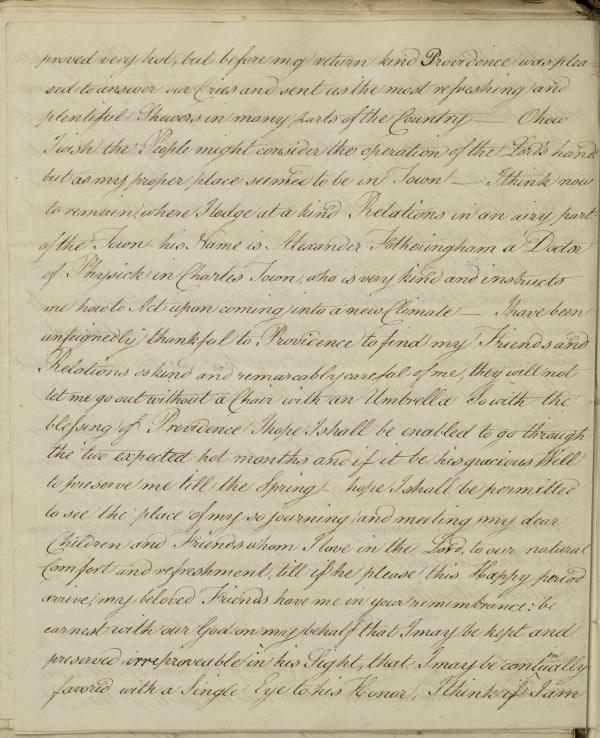 proved very hot, but before my return kind Providence was plea-
sed to answer our Cries and sent us the most refreshing and
plentiful Showers in many parts of the Country — O how
I wish the People might consider the operation of the Lord's hand.
but as my proper place seemed to be in Town — I think now
to remain where I lodge at a kind Relations in an airy part
of the Town his Name is Alexander Fotheringham a Doctor
of Physick in Charles Town, who is very kind and instructs
me how to Act upon coming into a new Climate — I have been
unfeignedly thankful to Providence to find my Friends and
Relations so kind and remarcably careful of me, they will not
let me go out without a Chair with an Umbrella So with the
blessing of Providence I hope I shall be enabled to go through
the two expected hot months and if it be his gracious Will
to preserve me till the Spring — hope I shall be permitted
to see the place of my sojourning and meeting my dear
Children and Friends whom I love in the Lord, to our natural
Comfort and refreshment, till if he please this Happy period
arrive, my beloved Friends have me in your remembrance: be
earnest with our God on my behalf that I may be kept and
preserved irreproveable in his Sight, that I may be continually
favor'd with a Single Eye to his Honor, I think if I am